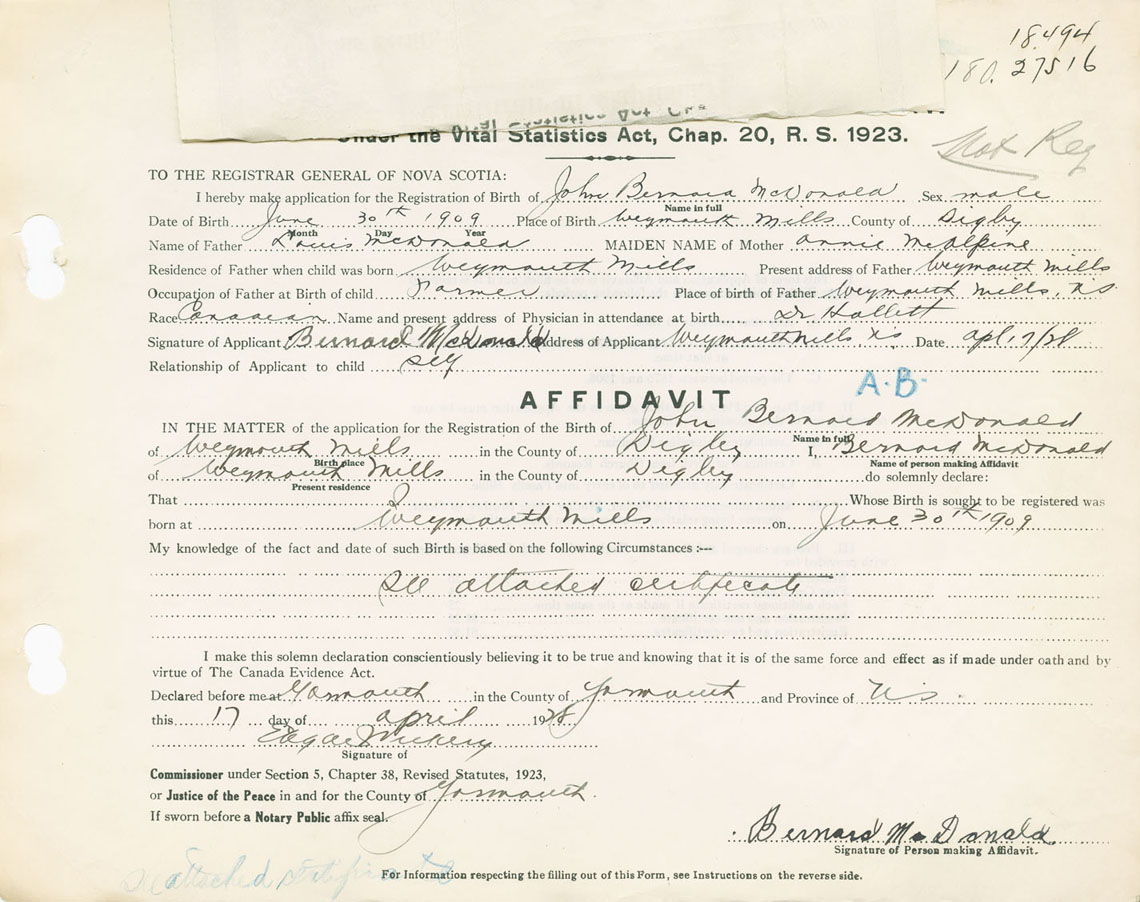 18,494
180. 27516
Under the Vital Statistics Act, Chap. 20, R. S. 1923.
Not Reg
TO THE REGISTRAR GENERAL OF NOVA SCOTIA:
I hereby make application for the Registration of Birth of John Bernard McDonald Sex male
Name in full
Date of Birth June 30th 1909 Place of Birth Weymouth Mills County of Digby
Month Day Year
Name of Father Louis McDonald MAIDEN NAME of Mother Annie McAlpine
Residence of Father when child was born Weymouth Mills Present address of Father Weymouth Mills
Occupation of Father at Birth of child Farmer Place of birth of Father Weymouth Mills, N.S.
Race Canadian Name and present address of Physician in attendance at birth Dr Hallett
Signature of Applicant Bernard McDonald Address of Applicant Weymouth Mills N.S. Date Apl. 17/28
Relationship of Applicant to child self
A.B.
AFFIDAVIT
IN THE MATTER of the application for the Registration of the Birth of John Bernard McDonald
Name in full
of Weymouth Mills in the County of Digby I, Bernard McDonald
Birth place Name of person making Affidavit
of Weymouth Mills in the County of Digby do solemnly declare:
Present residence
That I Whose Birth is sought to be registered was
born at Weymouth Mills on June 30th 1909
My knowledge of the fact and date of such Birth is based on the following Circumstances :---
See attached certificate
I make this solemn declaration conscientiously believing it to be true and knowing that it is of the same force and effect as if made under oath and by
virtue of The Canada Evidence Act.
Declared before me at Yarmouth in the County of Yarmouth and Province of N.S.
this 17 day of April 1928
Signature of
Commissioner under Section 5, Chapter 38, Revised Statutes, 1923,
or Justice of the Peace in and for the County of Yarmouth.
If sworn before a Notary Public affix seal.
Bernard McDonald
Signature of Person making Affidavit.
attached
For Information respecting the filling out of this Form, see Instructions on the reverse side.